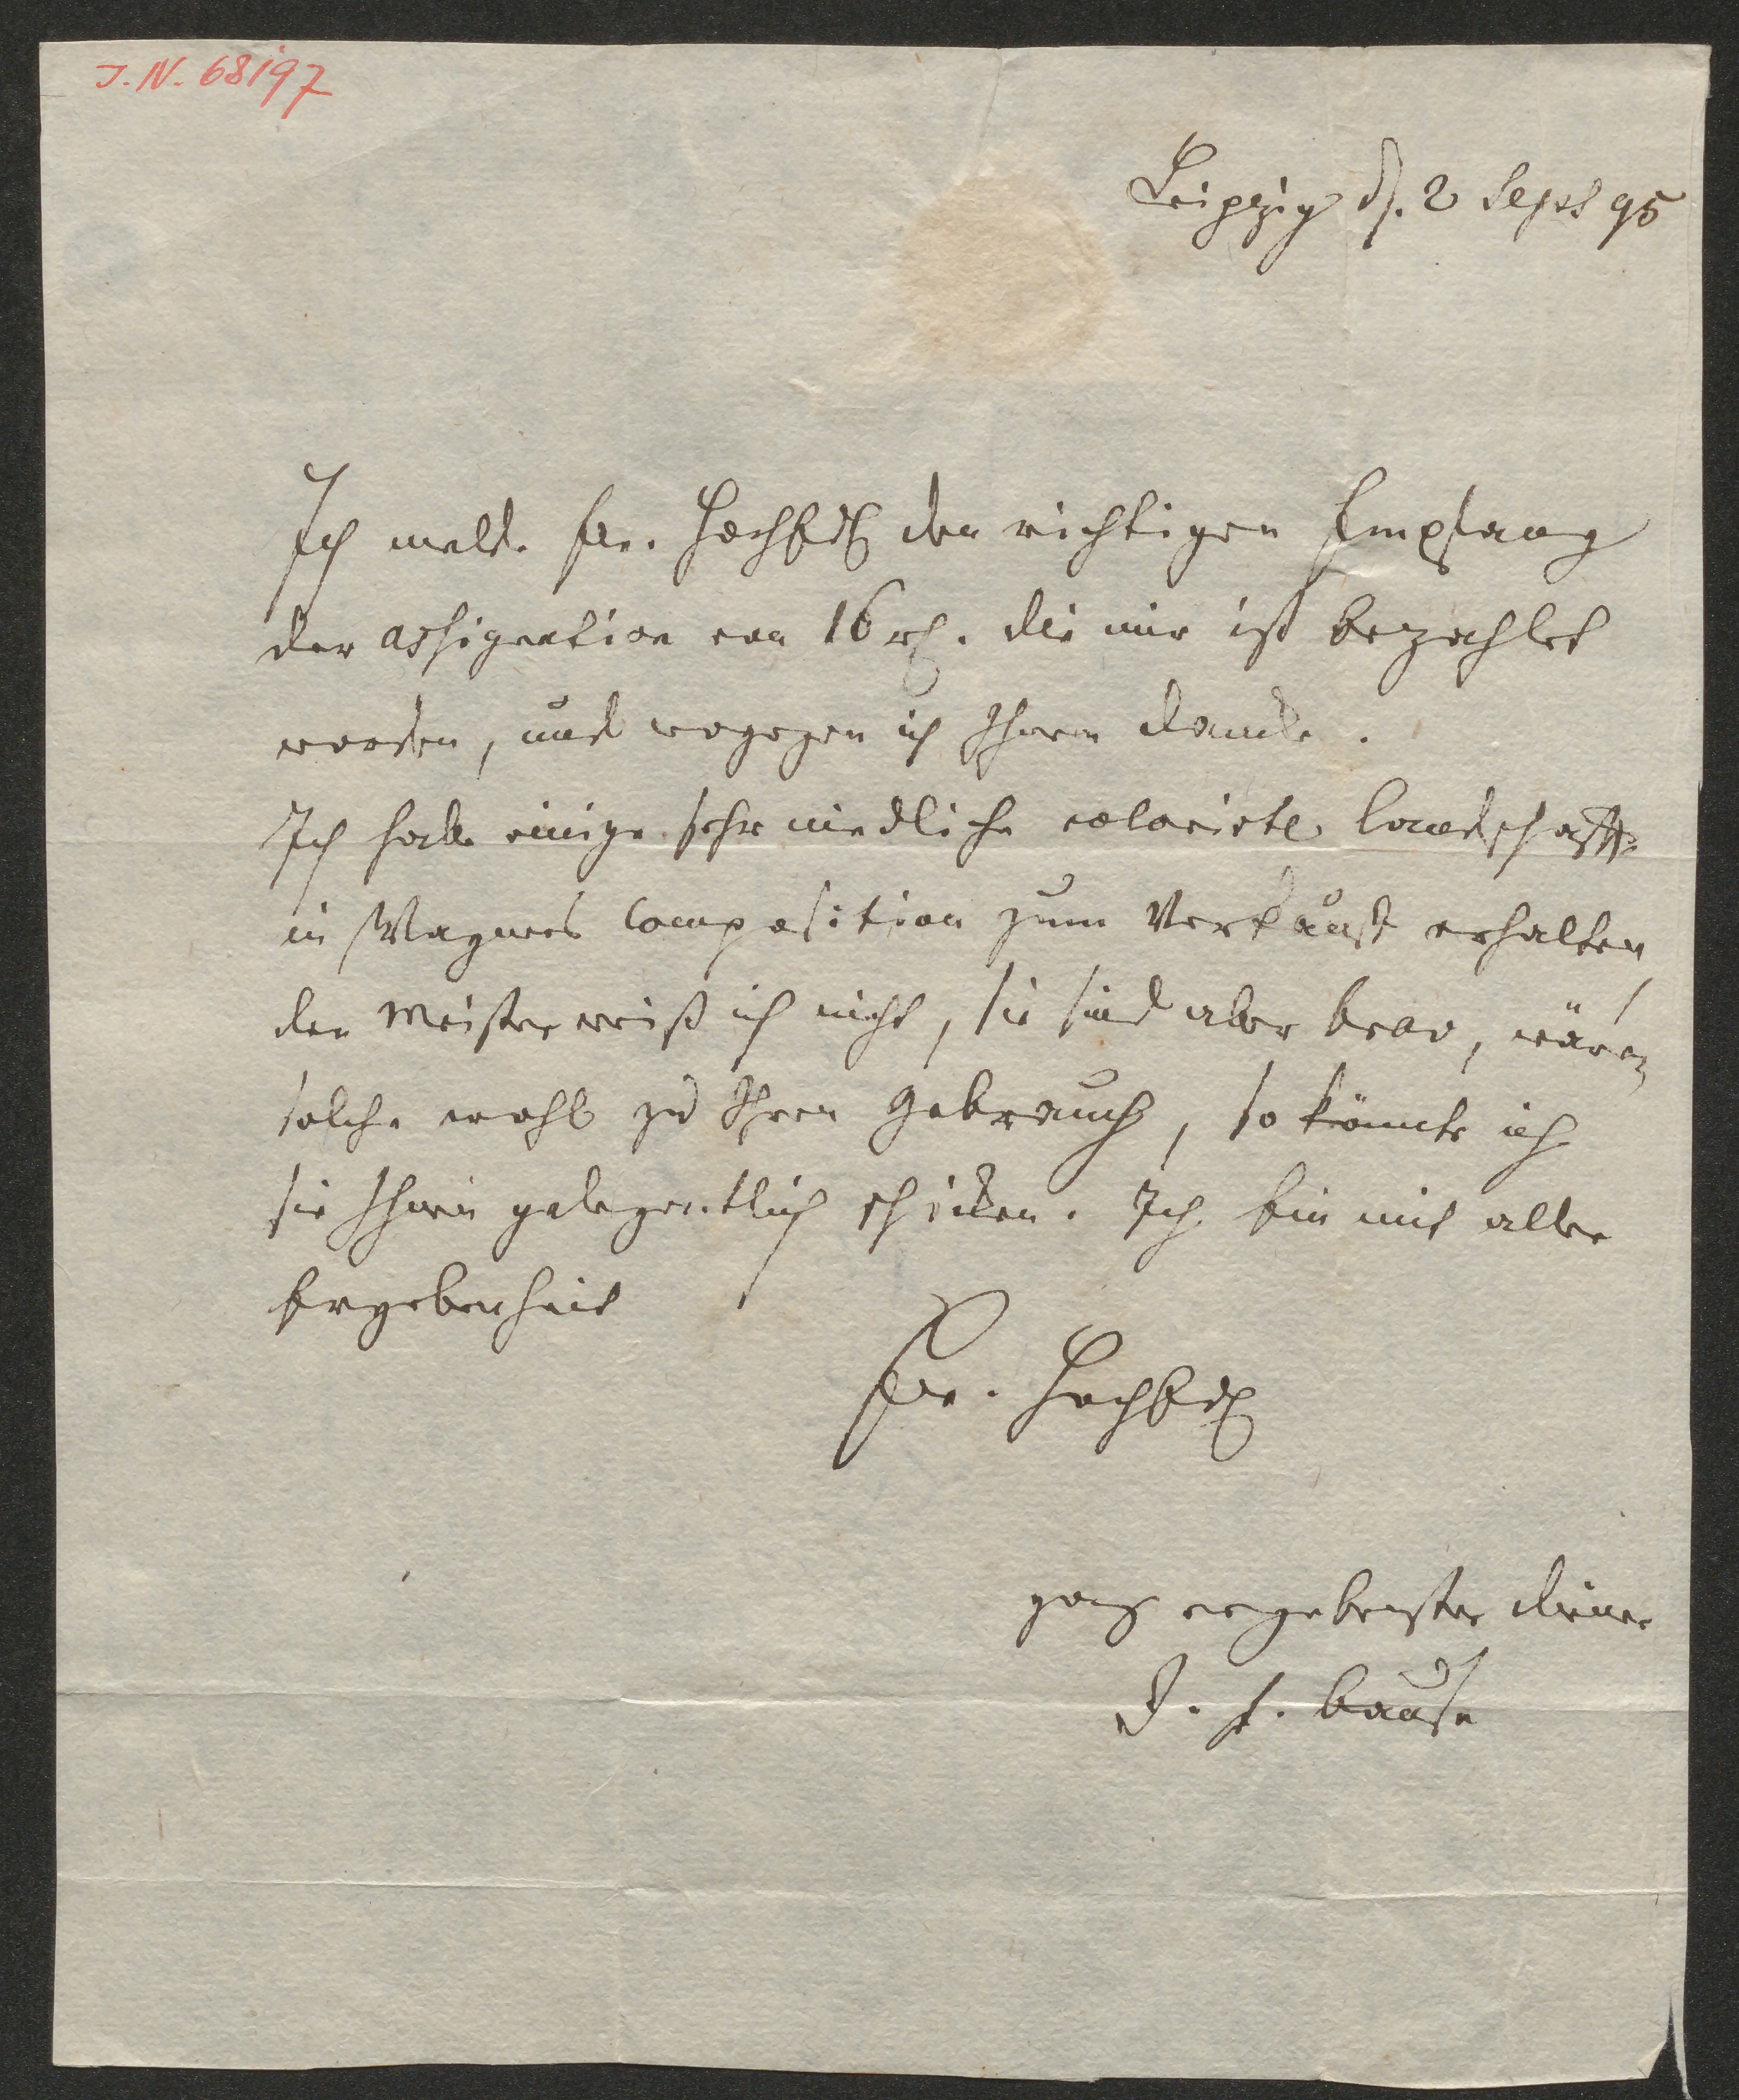 I. N. 68197
Leipzig d. 2 Sept 95
Ich melde Ew. HochEdl den richtigen Empfang
der assignation von 16 rth. die mir ist bezahlet
worden, und wogegen ich Ihnen dancke.
Ich habe einige sehr niedliche colorirte Landschafften
in Wagners Composition zum Verkauf erhalten
den Meister weiß ich nicht, sie sind aber brav, wären
solche wohl zu Ihren Gebrauch, so könnte ich
sie Ihnen gelegentlich schicken. Ich bin mit aller
Ergebenheit
Ew. HochEdl
ganz ergebenster Diener
J. F. Bause